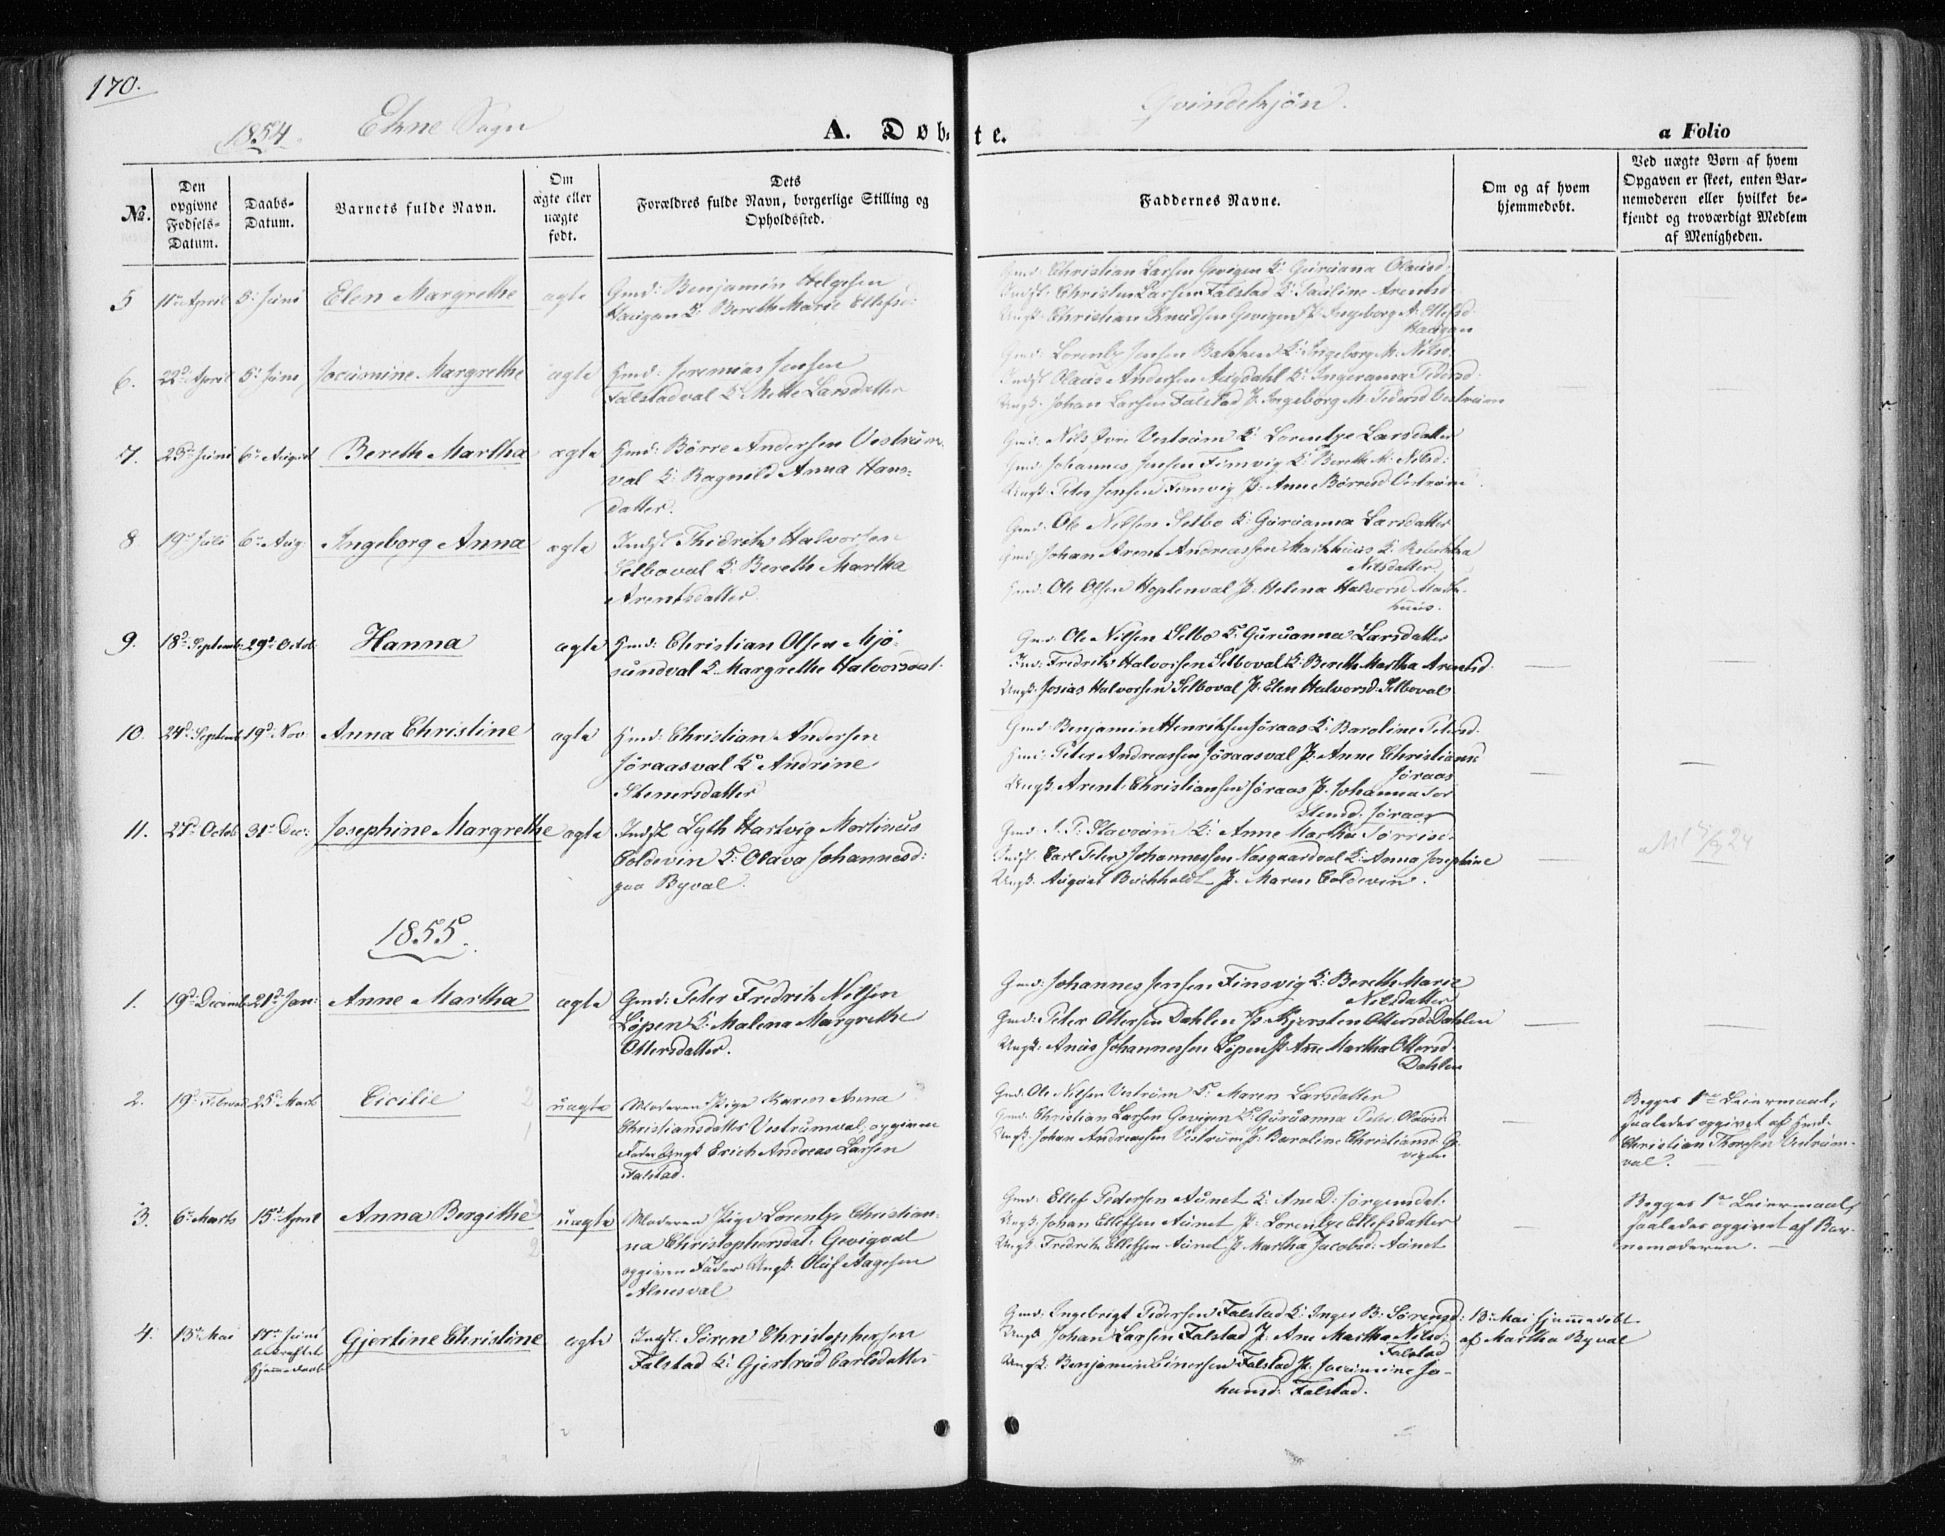 170.
1854.
Ekne Sogn
A. Døbte.
Qvindekjøn.
a Folio
No.
Den opgivne Fødsels-Datum.
Daabs-Datum.
Barnets fulde Navn.
Om ægte eller uægte født.
Dets Forældres fulde Navn, borgerlige Stilling og Opholdssted.
Faddernes Navne.
Om og af hvem hjemmedøbt.
Ved uægte Børn af hvem Opgaven er skeet, enten Barnemoderen eller hvilket bekjendt og troværdigt Medlem af Menigheden.
5 11te April 5te Juni Elen Margrethe ægte
Gmd: Benjamin Helgesen
Haugan K: Bereth Marie Ellefsd:
Gmd: Christian Larsen Gevigen K: Guruana Olausd:
Indst: Christen Larsen Falstad K: Pauline Arentsd
Ungk: Christian Knudsen Gevigen P: Ingeborg A: Ellefsd:
Haugan
6. 22de April 5te Juni Jocumine Margrethe ægte
Hmd: Jeremias Jensen
Falstadval K: Mette Larsdatter
Gmd: Lorentz Jensen Bakken K: Ingeborg M: Nilsd.
Indst Olaus Andersen Augdahl K: Ingeranna Pedersd.
Ungk: Johan Larsen Falstad P: Ingeborg M: Pedersd Vestrum
7. 23de Juni 6te August Bereth Martha ægte
Hmd: Børre Andersen Vestrum-
val K: Ragnild Anna Hans-
datter.
Gmd: Nils Vestrum K: Lorentze Larsdatter
Gmd Johannes Jensen Finsvig K: Bereth M: Nilsd:
Ungk: Peter Jensen Finsvig P: Anne Børresd Vestrum.
8 19de Juli 6te Aug: Ingeborg Anna ægte
Indst Fredrik Halvorsen
Selboval K: Bereth Martha
Arentsdatter.
Gmd: Ole Nilsen Selbo K: Guruanna Larsdatter
Gmd: Johan Arent Andreassen Matthuus K: Rebekka
Nilsdatter.
Hmd: Ole Olsen Hoplenval P: Helena Halvorsd Mat-
huus.
9. 18de Septemb: 29de Octob: Hanna ægte
Hmd: Christian Olsen Mjø-
sundval K. Margrethe Halvorsdat:
Gmd: Ole Nilsen Selbo K: Guruanna Larsdatter
Ind: Fredrik Halvorsen Selboval K: Bereth Martha Arentsd.
Ungk: Josias Halvorsen Selboval P: Elen Halvorsd: Selboval
10. 24de Septemb 19de Nov: Anna Christine ægte
Hmd: Christian Andersen
Jøraasval K: Andrine
Stenersdatter
Gmd Benjamin Henriksen Jøraas K: Baroline Petersd.
Hmd: Peter Andreassen Jøraasval P: Anne Christiansd
Jøraas
Ungk: Arent Christiansen Jøraas P: Johanna Tor
Stensd: Jøraas
11. 27de Octob 31te Dec: Josephine Margrethe ægte
Indst Lyth Hartvig Mortinus
Coldevin K: Olava Johannesd:
paa Byval.
Gmd: P. Stavrum K: Anne Martha Torrisd.
Indst: Carl Peter Johannessen Nasgaardval K: Anna Josephine
Ungk: August Buchholdt P: Maren Coldevin.
1855.
1. 19de Decemb: 21de Jan: Anne Martha ægte
Gmd: Peter Fredrik Nilsen
Løpen K: Malena Margrethe
Ottersdatter.
Gmd: Johannes Jensen Finsvig K: Bereth Marie
Nilsdatter
Gmd: Peter Ottersen Dahlen P: Kjersten Ottersd: Dahlen
Ungk: Anus Johannessen Løpen P: Anne Martha Ottersd.
Dahlen
2. 19de Februar 25de Marts Cicilie uægte
Moderen Pige Karen Anna
Christiansdatter Vestrumval, opgiven
Fader Ungk Erich Andreas Larsen
Falstad.
Gmd: Ole Nilsen Vestrum K: Maren Larsdatter
Gmd: Christian Larsen Gevigen K: Guruanna Peter Olausd.
Ungk: Johan Andreassen Vestrum P: Baroline Christiansd: Ge-
vigen
Begges 1te Leiermaal,
saaledes opgivet af Hmd:
Christian Thorsen Vestrum-
val.
3. 6te Marts 15de April Anna Bergithe uægte
Moderen Pige Lorentze Christian-
na Christophersdat: Gevigval
opgiven Fader Ungk: Oluf Aagesen
Alnesval
Gmd: Ellef Pedersen Aunet K: Ane D: Jørgensdat.
Ungk: Johan Ellefsen Aunet P: Lorentze Ellefsdatter
Ungk: Fredrik Ellefsen Aunet P: Martha Jacobsd: Aunet
Begges 1te Leiermaal,
saaledes opgivet af Bar-
nemoderen.
4. 13de Mai 17de Juni bekræftet hjemmedaab Gjertine Christine ægte
Indst: Søren Christophersen
Falstad K: Gjertrud Carlsdatter
Gmd: Ingebrigt Pedersen Falstad K: Inger B: Sørensd:
Ungk Johan Larsen Falstad P: Ane Martha Nilsd:
Falstad
Ungk: Benjamin Einersen Falstad P: Jocumine Jo-
hansd: Falstad.
13de Mai hjemmedøbt
af Martha Byval